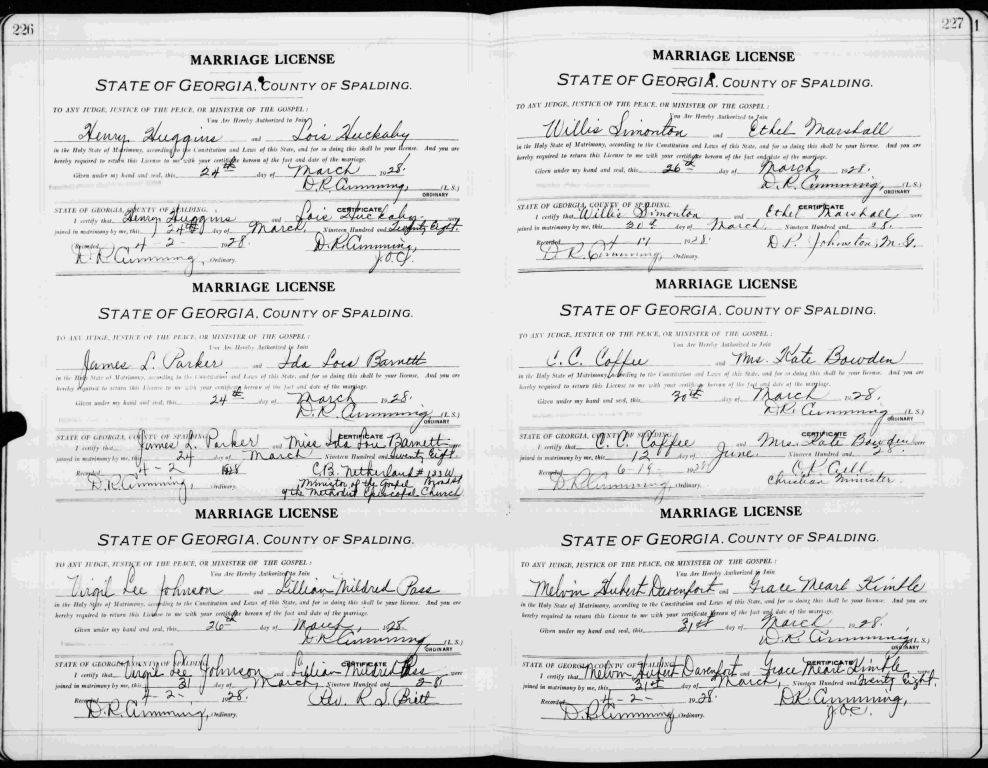 226
MARRIAGE LICENSE
STATE OF GEORGIA, COUNTY OF SPALDING.
TO ANY JUDGE, JUSTICE OF THE PEACE, OR MINISTER OF THE GOSPEL:
You Are Hereby Authorized to Join
Henry Huggins and Lois Huckaby
in the Holy State of Matrimony, according to the Constitution and Laws of this State, and for so doing this shall be your license. And you are
hereby required to return this License to me with your certificate hereon of the fact and date of the marriage.
Given under my hand and seal, this 24th day of March 1928.
D.R. Cumming, (L.S.)
ORDINARY
STATE OF GEORGIA, COUNTY OF SPALDING. CERTIFICATE
I certify that Henry Huggins and Lois Huckaby were
joined in matrimony by me, this 24th day of March, Nineteen Hundred and Twenty Eight.
Recorded 4-2 1928. D.R. Cumming,
D.R. Cumming, Ordinary. J.O.C.
MARRIAGE LICENSE
STATE OF GEORGIA, COUNTY OF SPALDING.
TO ANY JUDGE, JUSTICE OF THE PEACE, OR MINISTER OF THE GOSPEL:
You Are Hereby Authorized to Join
James L. Parker and Ida Lois Barnett
in the Holy State of Matrimony, according to the Constitution and Laws of this State, and for so doing this shall be your license. And you are
hereby required to return this License to me with your certificate hereon of the fact and date of the marriage.
Given under my hand and seal, this 24th day of March 1928.
D.R. Cumming (L.S.)
ORDINARY
STATE OF GEORGIA, COUNTY OF SPALDING. CERTIFICATE
I certify that James L. Parker and Miss Ida Lois Barnett were
joined in matrimony by me, this 24 day of March Nineteen Hundred and Twenty Eight.
Recorded 4-2 1928 C.B. Netherland # 122 W.
D.R. Cumming, Ordinary. Minister of the Gospel
of the Methodist Episcopal Church
MARRIAGE LICENSE
STATE OF GEORGIA, COUNTY OF SPALDING.
TO ANY JUDGE, JUSTICE OF THE PEACE, OR MINISTER OF THE GOSPEL:
You Are Hereby Authorized to Join
Virgil Lee Johnson and Lillian Mildred Pass
in the Holy State of Matrimony, according to the Constitution and Laws of this State, and for so doing this shall be your license. And you are
hereby required to return this License to me with your certificate hereon of the fact and date of the marriage.
Given under my hand and seal, this 26th day of March, 1928
D.R. Cumming (L.S.)
ORDINARY
STATE OF GEORGIA, COUNTY OF SPALDING. CERTIFICATE
I certify that Virgil Lee Johnson and Lillian Mildred Pass were
joined in matrimony by me, this 31 day of March Nineteen Hundred and 28
Recorded 4-2- 1928. Rev. R. J. Brett
D.R. Cumming, Ordinary.
227
MARRIAGE LICENSE
STATE OF GEORGIA, COUNTY OF SPALDING.
TO ANY JUDGE, JUSTICE OF THE PEACE, OR MINISTER OF THE GOSPEL:
You Are Hereby Authorized to Join
Willis Simonton and Ethel Marshall
in the Holy State of Matrimony, according to the Constitution and Laws of this State, and for so doing this shall be your license. And you are
hereby required to return this License to me with your certificate hereon of the fact and date of the marriage.
Given under my hand and seal, this 26th day of March, 1928.
D.R. Cumming, (L.S.)
ORDINARY
STATE OF GEORGIA, COUNTY OF SPALDING. CERTIFICATE
I certify that Willis Simonton and Ethel Marshall were
joined in matrimony by me, this day of March, Nineteen Hundred and 28.
Recorded 4 1928. D.P. Johnston, M.G.
D.R. Cumming, Ordinary.
MARRIAGE LICENSE
STATE OF GEORGIA, COUNTY OF SPALDING.
TO ANY JUDGE, JUSTICE OF THE PEACE, OR MINISTER OF THE GOSPEL:
You Are Hereby Authorized to Join
C. C. Coffee and Mrs. Kate Bowden
in the Holy State of Matrimony, according to the Constitution and Laws of this State, and for so doing this shall be your license. And you are
hereby required to return this License to me with your certificate hereon of the fact and date of the marriage.
Given under my hand and seal, this 30th day of March 1928.
D.R. Cumming (L.S.)
ORDINARY
STATE OF GEORGIA, COUNTY OF SPALDING. CERTIFICATE
I certify that C. C. Coffee and Mrs. Kate Bowden were
joined in matrimony by me, this 12 day of June Nineteen Hundred and 28.
Recorded 6-19- 1928
D.R. Cumming, Ordinary. Christian Minister.
MARRIAGE LICENSE
STATE OF GEORGIA, COUNTY OF SPALDING.
TO ANY JUDGE, JUSTICE OF THE PEACE, OR MINISTER OF THE GOSPEL:
You Are Hereby Authorized to Join
Melvin Hubert Davenport and Grace Mearl Kimble
in the Holy State of Matrimony, according to the Constitution and Laws of this State, and for so doing this shall be your license. And you are
hereby required to return this License to me with your certificate hereon of the fact and date of the marriage.
Given under my hand and seal, this 31st day of March 1928.
D.R. Cumming (L.S.)
ORDINARY
STATE OF GEORGIA, COUNTY OF SPALDING. CERTIFICATE
I certify that Melvin Hubert Davenport and Grace Mearl Kimble were
joined in matrimony by me, this 31st day of March, Nineteen Hundred and Twenty Eight.
Recorded 4-2- 1928. D.R. Cumming,
D.R. Cumming, Ordinary. J.O.C.